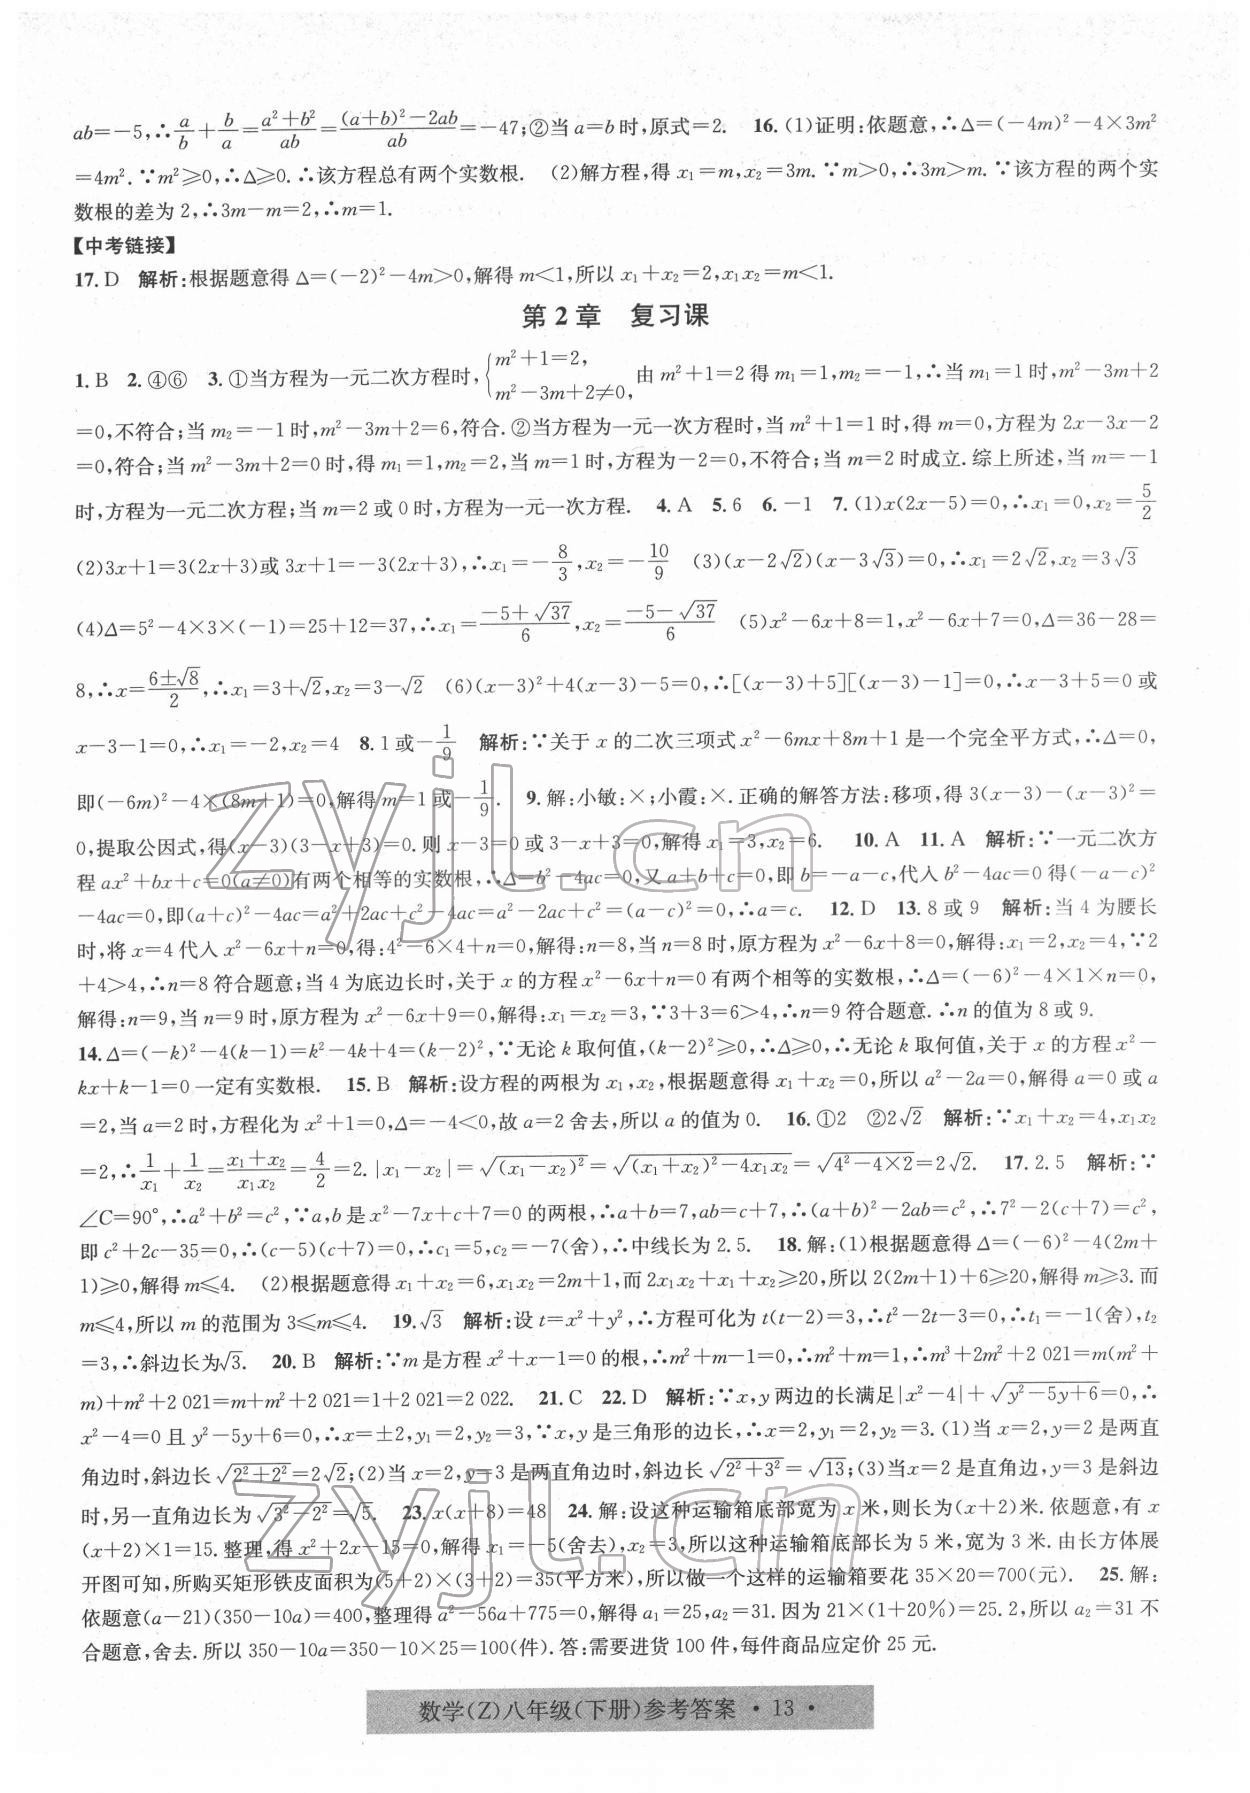 ab=-5,∴a/b+b/a=(a²+b²)/ab=((a+b)²-2ab)/ab=-47;②当a=b时,原式=2. 16.(1)证明:依题意,∴Δ=(-4m)²-4×3m²
=4m².∵m²≥0,∴Δ≥0.∴该方程总有两个实数根. (2)解方程,得x₁=m,x₂=3m.∵m>0,∴3m>m.∵该方程的两个实
数根的差为2,∴3m-m=2,∴m=1.
【中考链接】
17.D 解析:根据题意得Δ=(-2)²-4m>0,解得m<1,所以x₁+x₂=2,x₁x₂=m<1.
第2章 复习课
1.B 2.④⑥ 3.①当方程为一元二次方程时,{m²+1=2, m²-3m+2≠0,由m²+1=2得m₁=1,m₂=-1,∴当m₁=1时,m²-3m+2
=0,不符合;当m₂=-1时,m²-3m+2=6,符合.②当方程为一元一次方程时,当m²+1=1时,得m=0,方程为2x-3x-2
=0,符合;当m²-3m+2=0时,得m₁=1,m₂=2,当m=1时,方程为-2=0,不符合;当m=2时成立.综上所述,当m=-1
时,方程为一元二次方程;当m=2或0时,方程为一元一次方程. 4.A 5.6 6.-1 7.(1)x(2x-5)=0,∴x₁=0,x₂=5/2
(2)3x+1=3(2x+3)或3x+1=-3(2x+3),∴x₁=-8/3,x₂=-10/9 (3)(x-2√2)(x-3√3)=0,∴x₁=2√2,x₂=3√3
(4)Δ=5²-4×3×(-1)=25+12=37,∴x₁=(-5+√37)/6,x₂=(-5-√37)/6 (5)x²-6x+8=1,x²-6x+7=0,Δ=36-28=
8,∴x=(6±√8)/2,∴x₁=3+√2,x₂=3-√2 (6)(x-3)²+4(x-3)-5=0,∴[(x-3)+5][(x-3)-1]=0,∴x-3+5=0或
x-3-1=0,∴x₁=-2,x₂=4 8.1或-1/9 解析:∵关于x的二次三项式x²-6mx+8m+1是一个完全平方式,∴Δ=0,
即(-6m)²-4×(8m+1)=0,解得m=1或-1/9. 9.解:小敏:×;小霞:×.正确的解答方法:移项,得3(x-3)-(x-3)²=
0,提取公因式,得(x-3)(3-x+3)=0.则x-3=0或3-x+3=0,解得x₁=3,x₂=6. 10.A 11.A 解析:∵一元二次方
程ax²+bx+c=0(a≠0)有两个相等的实数根,∴Δ=b²-4ac=0,又a+b+c=0,即b=-a-c,代入b²-4ac=0得(-a-c)²
-4ac=0,即(a+c)²-4ac=a²+2ac+c²-4ac=a²-2ac+c²=(a-c)²=0,∴a=c. 12.D 13.8或9 解析:当4为腰长
时,将x=4代入x²-6x+n=0,得:4²-6×4+n=0,解得:n=8,当n=8时,原方程为x²-6x+8=0,解得:x₁=2,x₂=4,∵2
+4>4,∴n=8符合题意;当4为底边长时,关于x的方程x²-6x+n=0有两个相等的实数根,∴Δ=(-6)²-4×1×n=0,
解得:n=9,当n=9时,原方程为x²-6x+9=0,解得:x₁=x₂=3,∵3+3=6>4,∴n=9符合题意.∴n的值为8或9.
14.Δ=(-k)²-4(k-1)=k²-4k+4=(k-2)²,∵无论k取何值,(k-2)²≥0,∴Δ≥0,∴无论k取何值,关于x的方程x²-
kx+k-1=0一定有实数根. 15.B 解析:设方程的两根为x₁,x₂,根据题意得x₁+x₂=0,所以a²-2a=0,解得a=0或a
=2,当a=2时,方程化为x²+1=0,Δ=-4<0,故a=2舍去,所以a的值为0. 16.①2 ②2√2 解析:∵x₁+x₂=4,x₁x₂
=2,∴1/x₁+1/x₂=(x₁+x₂)/x₁x₂=4/2=2.|x₁-x₂|=√(x₁-x₂)²=√((x₁+x₂)²-4x₁x₂)=√(4²-4×2)=2√2. 17.2.5 解析:∵
∠C=90°,∴a²+b²=c²,∵a,b是x²-7x+c+7=0的两根,∴a+b=7,ab=c+7,∴(a+b)²-2ab=c²,∴7²-2(c+7)=c²,
即c²+2c-35=0,∴(c-5)(c+7)=0,∴c₁=5,c₂=-7(舍),∴中线长为2.5. 18.解:(1)根据题意得Δ=(-6)²-4(2m+
1)≥0,解得m≤4. (2)根据题意得x₁+x₂=6,x₁x₂=2m+1,而2x₁x₂+x₁+x₂≥20,所以2(2m+1)+6≥20,解得m≥3.而
m≤4,所以m的范围为3≤m≤4. 19.√3 解析:设t=x²+y²,∴方程可化为t(t-2)=3,∴t²-2t-3=0,∴t₁=-1(舍),t₂
=3,∴斜边长为√3. 20.B 解析:∵m是方程x²+x-1=0的根,∴m²+m-1=0,∴m²+m=1,∴m³+2m²+2 021=m(m²+
m)+m²+2 021=m+m²+2 021=1+2 021=2 022. 21.C 22.D 解析:∵x,y两边的长满足|x²-4|+√(y²-5y+6)=0,∴
x²-4=0且y²-5y+6=0,∴x=±2,y₁=2,y₂=3,∵x,y是三角形的边长,∴x=2,y₁=2,y₂=3.(1)当x=2,y=2是两直
角边时,斜边长√(2²+2²)=2√2;(2)当x=2,y=3是两直角边时,斜边长√(2²+3²)=√13;(3)当x=2是直角边,y=3是斜边
时,另一直角边长为√(3²-2²)=√5. 23.x(x+8)=48 24.解:设这种运输箱底部宽为x米,则长为(x+2)米.依题意,有x
(x+2)×1=15.整理,得x²+2x-15=0,解得x₁=-5(舍去),x₂=3,所以这种运输箱底部长为5米,宽为3米.由长方体展
开图可知,所购买矩形铁皮面积为(5+2)×(3+2)=35(平方米),所以做一个这样的运输箱要花35×20=700(元). 25.解:
依题意(a-21)(350-10a)=400,整理得a²-56a+775=0,解得a₁=25,a₂=31.因为21×(1+20%)=25.2,所以a₂=31不
合题意,舍去.所以350-10a=350-10×25=100(件).答:需要进货100件,每件商品应定价25元.
数学(Z)八年级(下册)参考答案 · 13 ·
zyjl.cn
zyjl.cn